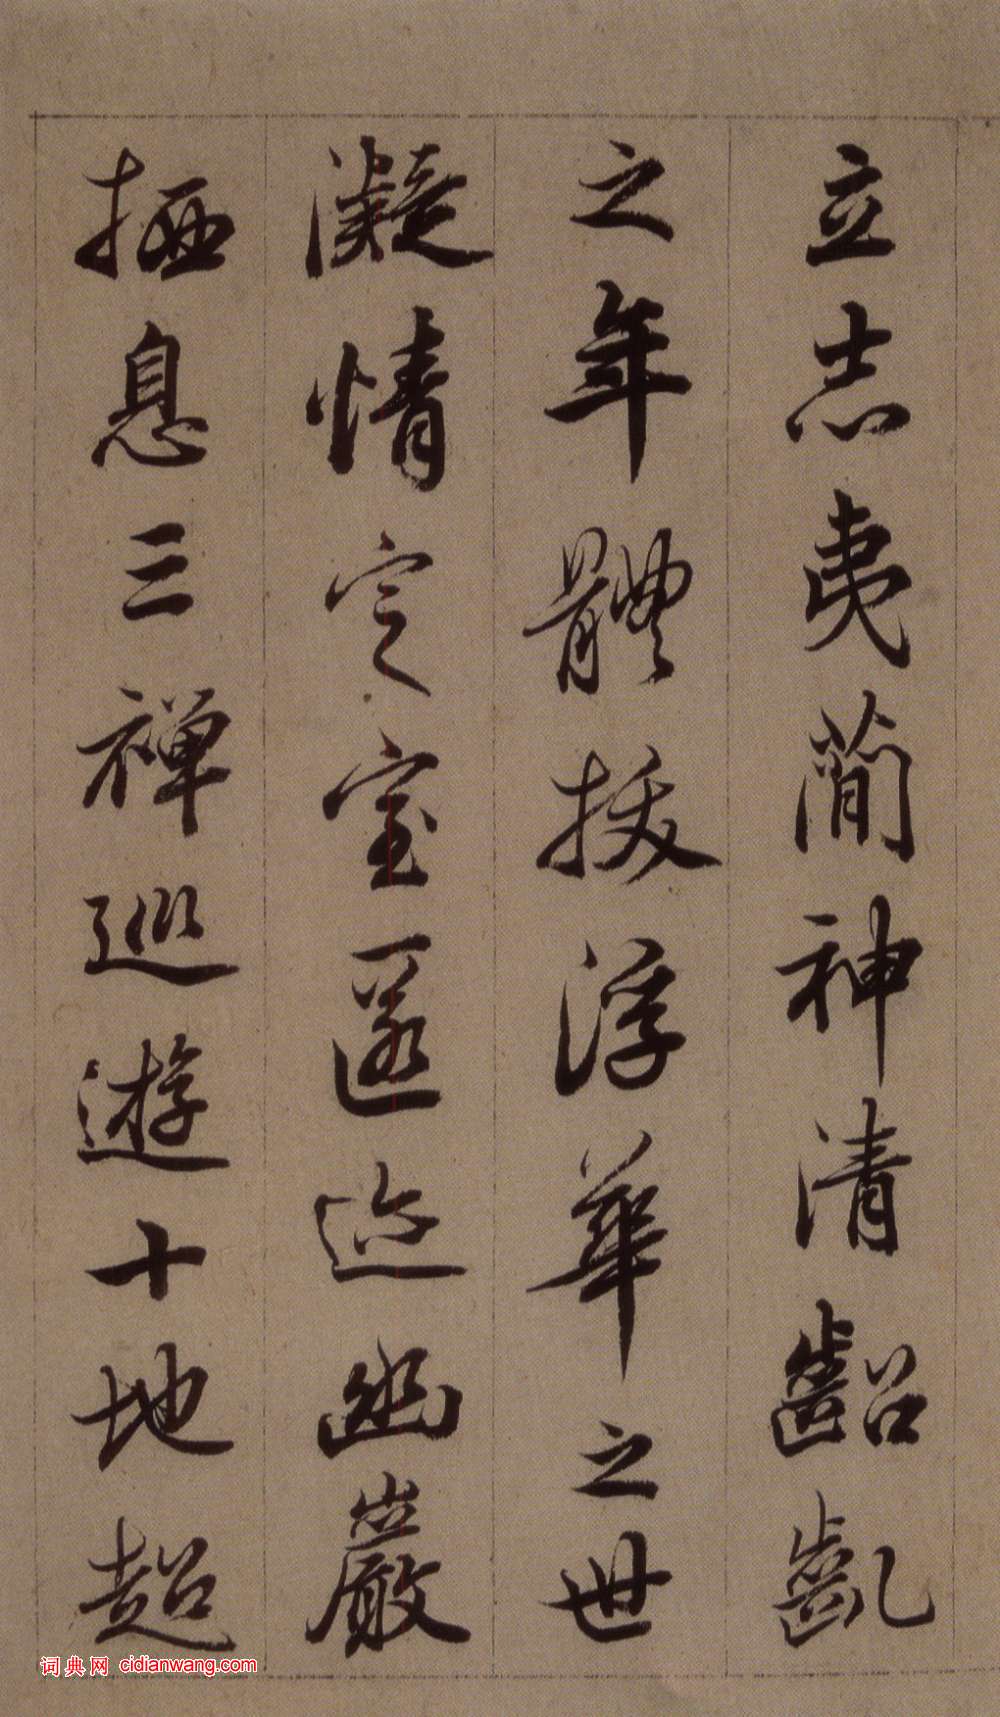 立志夷簡神清齠齔
之年體拔浮華之世
凝情定室匿迹幽巖
栖息三禪巡遊十地超
词典网 cidianwang.com